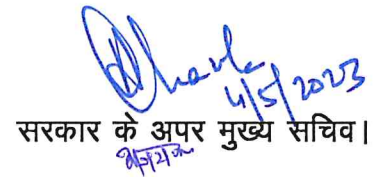 4/5/2023
सरकार के अपर मुख्य सचिव।